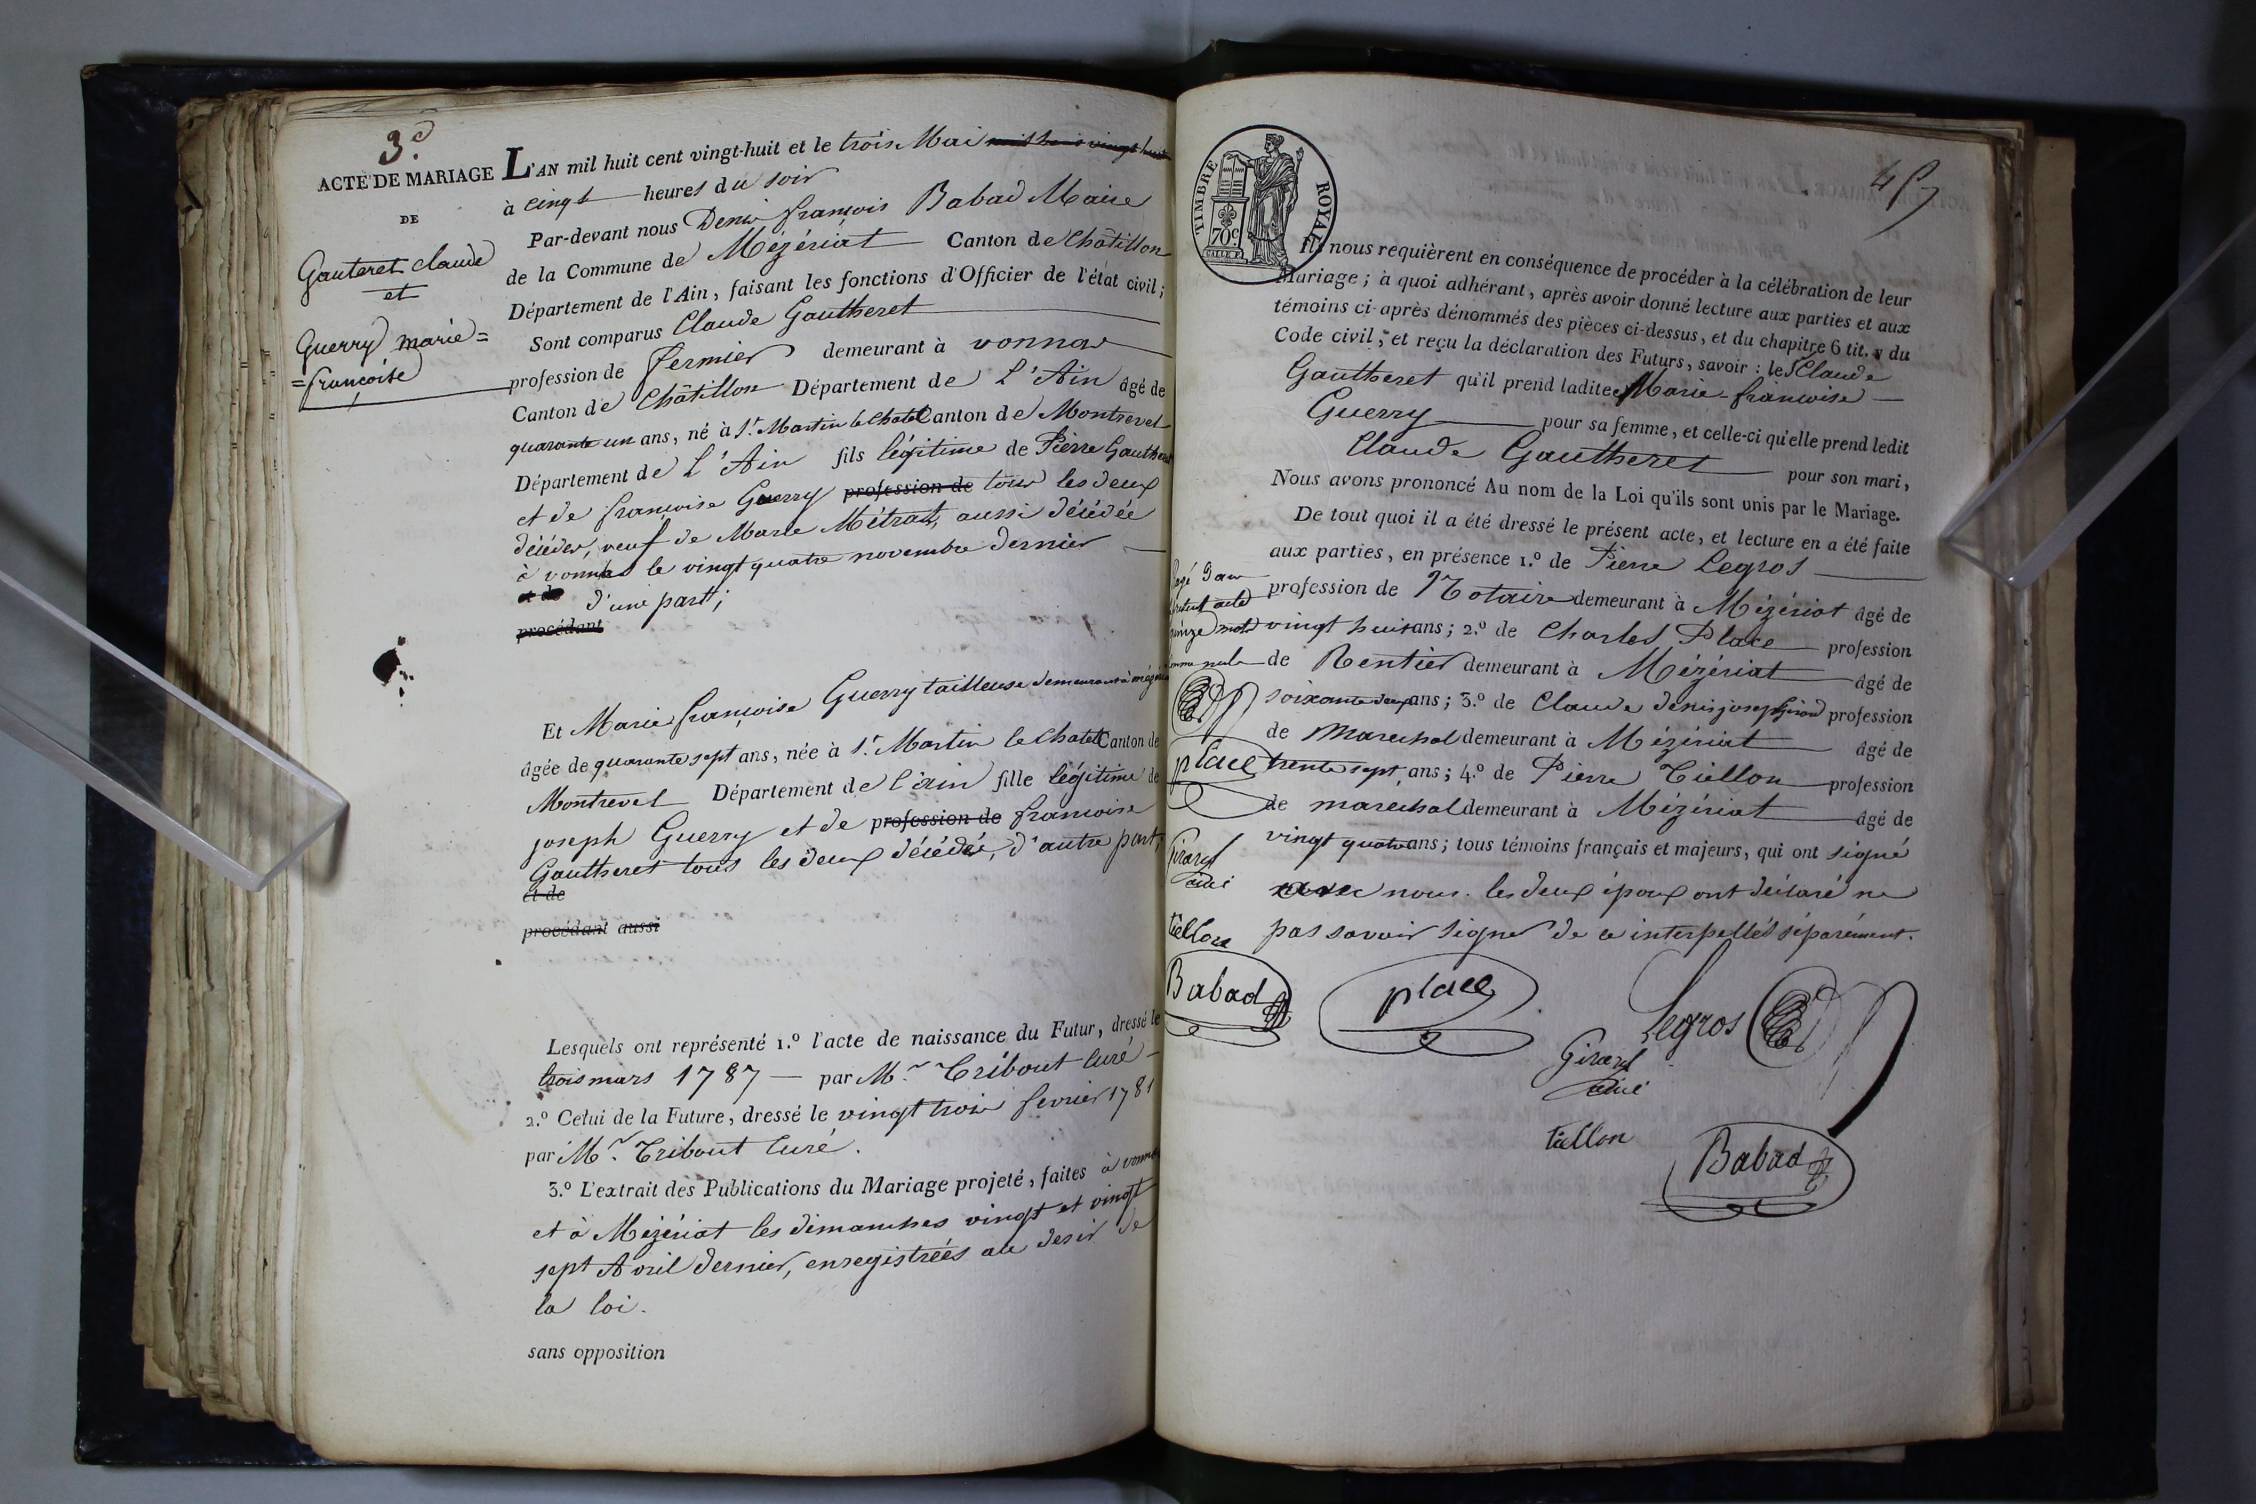 3.e
ACTE DE MARIAGE
DE
Gauteret claude
et
Guerry marie=
=françoise
L'AN mil huit cent vingt-huit et le trois Mai mil huit vingt huit
à cinq heures du soir
Par-devant nous Denis françois Babad Maire
de la Commune de Mézériat Canton de Châtillon
Département de l'Ain, faisant les fonctions d'Officier de l'état civil;
Sont comparus Claude Gautheret
profession de fermier demeurant à vonnas
Canton de Châtillon Département de L'Ain âgé de
quarante un ans, né à St. Martin le Chatel Canton de Montrevel
Département de L'Ain fils légitime de Pierre Gautheret
et de françoise Guerry profession de tous les deux
décédés, veuf de Marie Métrat, aussi décédée
à vonnas le vingt quatre novembre dernier
et de d'une part;
procédant
Et Marie françoise Guerry tailleuse demeurant à mézériat
âgée de quarante sept ans, née à St. Martin le Chatel Canton de
Montrevel Département de l'ain fille légitime de
joseph Guerry et de profession de francoise
Gautheret tous les deux décédés, d'autre part;
et de
procédant aussi
Lesquels ont représenté 1.º l'acte de naissance du Futur, dressé le
trois mars 1787 — par Mr. Tribout Curé
2.º Celui de la Future, dressé le vingt trois fevrier 1781
par Mr. Tribout Curé.
3.º L'extrait des Publications du Mariage projeté, faites à vonnas
et à Mézériat les dimanches vingt et vingt
sept Avril dernier, enregistrées au desir de
la loi.
sans opposition
TIMBRE ROYAL
70c
Ils nous requièrent en conséquence de procéder à la célébration de leur
Mariage; à quoi adhérant, après avoir donné lecture aux parties et aux
témoins ci-après dénommés des pièces ci-dessus, et du chapitre 6 tit. v du
Code civil; et reçu la déclaration des Futurs, savoir : le s Claude
Gautheret qu'il prend ladite Marie-francoise
Guerry pour sa femme, et celle-ci qu'elle prend ledit
Claude Gautheret pour son mari,
Nous avons prononcé Au nom de la Loi qu'ils sont unis par le Mariage.
De tout quoi il a été dressé le présent acte, et lecture en a été faite
aux parties, en présence 1.º de Pierre Legros
profession de Notaire demeurant à Mézériat âgé de
vingt huit ans; 2.º de Charles Place profession
de Rentier demeurant à Mézériat âgé de
soixante deux ans; 3.º de Claude denis joseph Girard profession
de Marechal demeurant à Mézériat âgé de
trente sept ans; 4.º de Pierre Tiellon profession
de maréchal demeurant à Mézériat âgé de
vingt quatre ans; tous témoins français et majeurs, qui ont signé
avec nous. les deux époux ont déclaré ne
pas savoir signer de ce interpellés séparément.
Rayé dans
présent acte
quinze mots
comme nuls
place
Girard
tiellon
Babad
place
Legros
Girard
tiellon
Babad